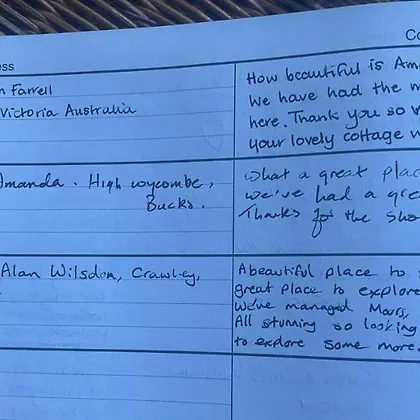 ess
Co
n Farrell
Victoria Australia
How beautiful is Am
We have had the m
here. Thank you so v
your lovely cottage w
Amanda. High wycombe,
Bucks.
What a great plac
we've had a gre
Thanks for the Sho
Alan Wilsdon, Crawley,
A beautiful place to
great place to explore
We've managed Moors,
All stunning so looking
to explore some more.